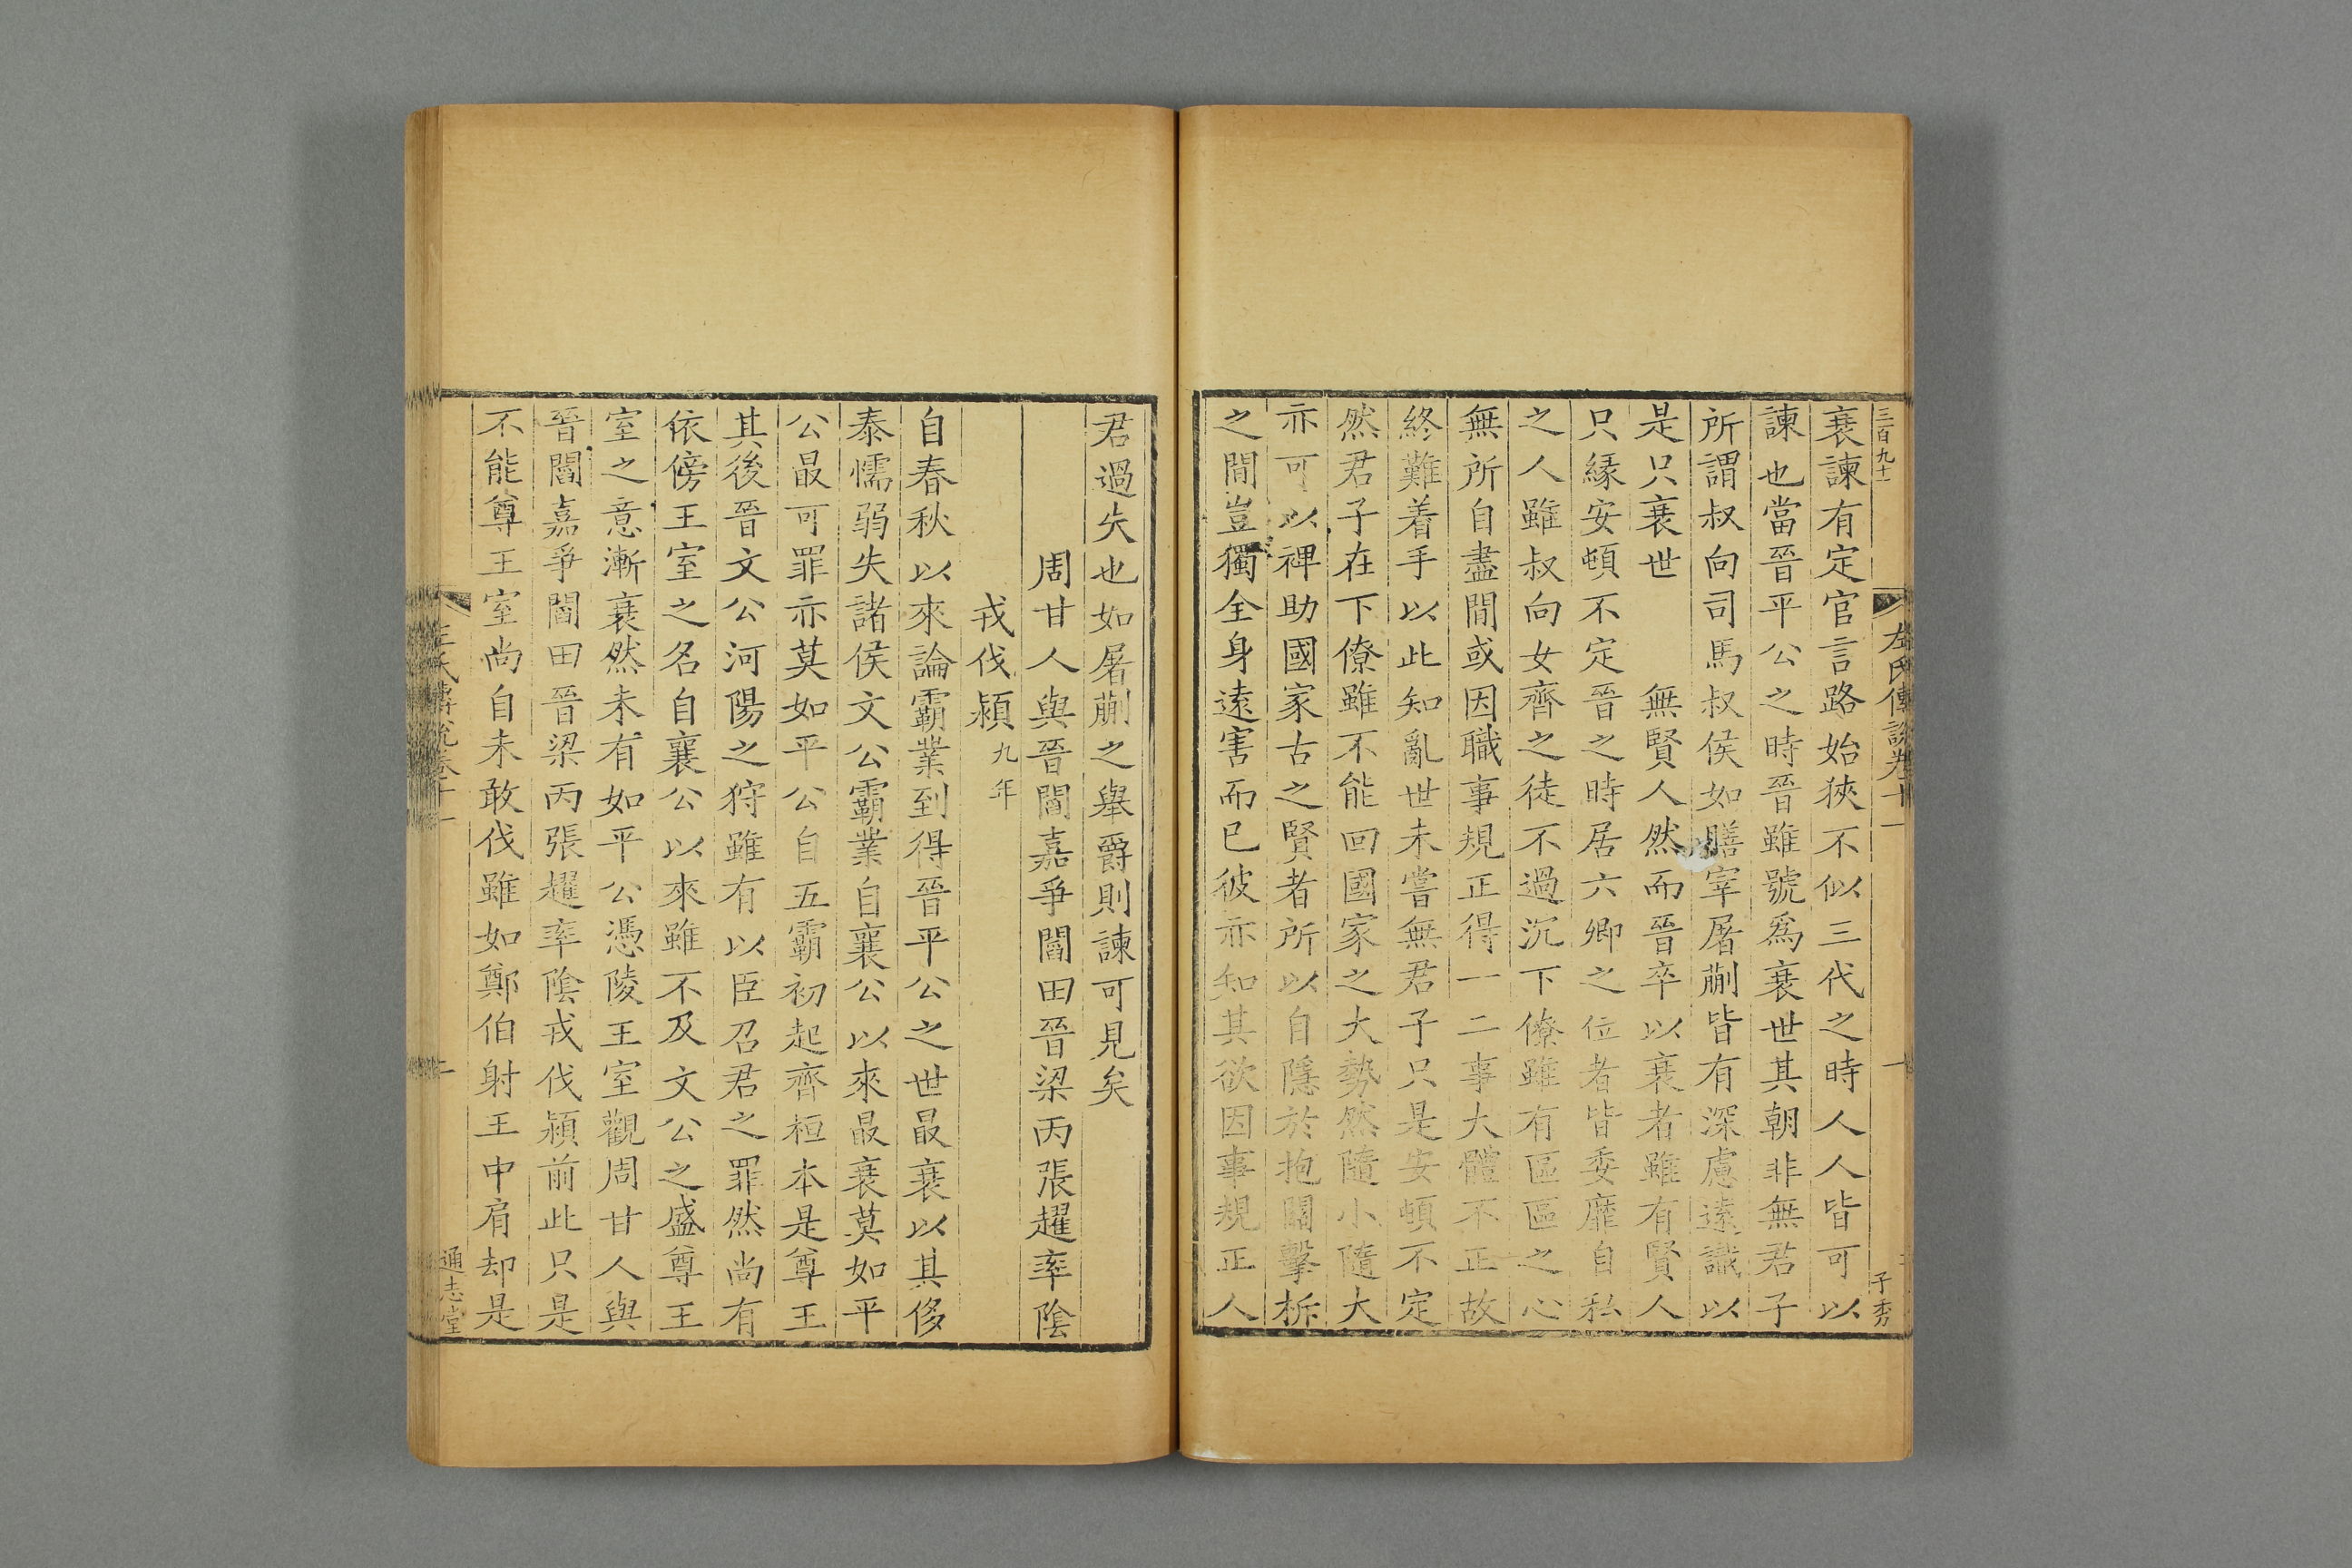 三百九十一
左氏傳說卷十一
十
子秀
衰諫有定官言路始狹不似三代之時人人皆可以
諫也當晉平公之時晉雖號爲衰世其朝非無君子
所謂叔向司馬叔侯如膳宰屠蒯皆有深慮遠識以
是只衰世 無賢人然而晉卒以衰者雖有賢人
只緣安頓不定晉之時居六卿之位者皆委靡自私
之人雖叔向女齊之徒不過沉下僚雖有區區之心
無所自盡間或因職事規正得一二事大體不正故
終難着手以此知亂世未嘗無君子只是安頓不定
然君子在下僚雖不能回國家之大勢然隨小隨大
亦可以裨助國家古之賢者所以自隱於抱關擊柝
之間豈獨全身遠害而已彼亦知其欲因事規正人
君過失也如屠蒯之舉爵則諫可見矣
周甘人與晉閻嘉爭閻田晉梁丙張趯率陰
戎伐潁九年
自春秋以來論霸業到得晉平公之世最衰以其侈
泰懦弱失諸侯文公霸業自襄公以來最衰莫如平
公最可罪亦莫如平公自五霸初起齊桓本是尊王
其後晉文公河陽之狩雖有以臣召君之罪然尚有
依傍王室之名自襄公以來雖不及文公之盛尊王
室之意漸衰然未有如平公憑陵王室觀周甘人與
晉閻嘉爭閻田晉梁丙張趯率陰戎伐潁前此只是
不能尊王室尚自未敢伐雖如鄭伯射王中肩却是
通志堂